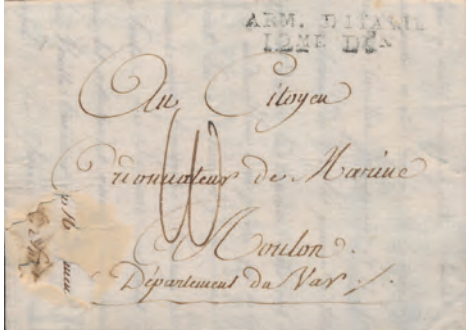 ARM. D'ITALIE
12ME DON
Au Citoyen
de Marine
Toulon.
Département du Var ./.